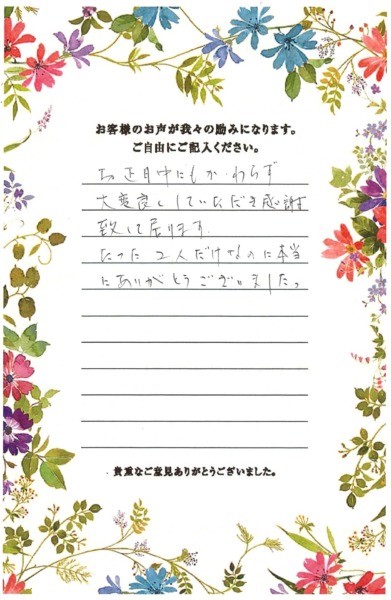 お客様のお声が我々の励みになります。
ご自由にご記入ください。
お正月中にもかゝわらず
大変良くしていただき感謝
致して居ります。
たった2人だけなのに本当
にありがとうございました。
貴重なご意見ありがとうございました。